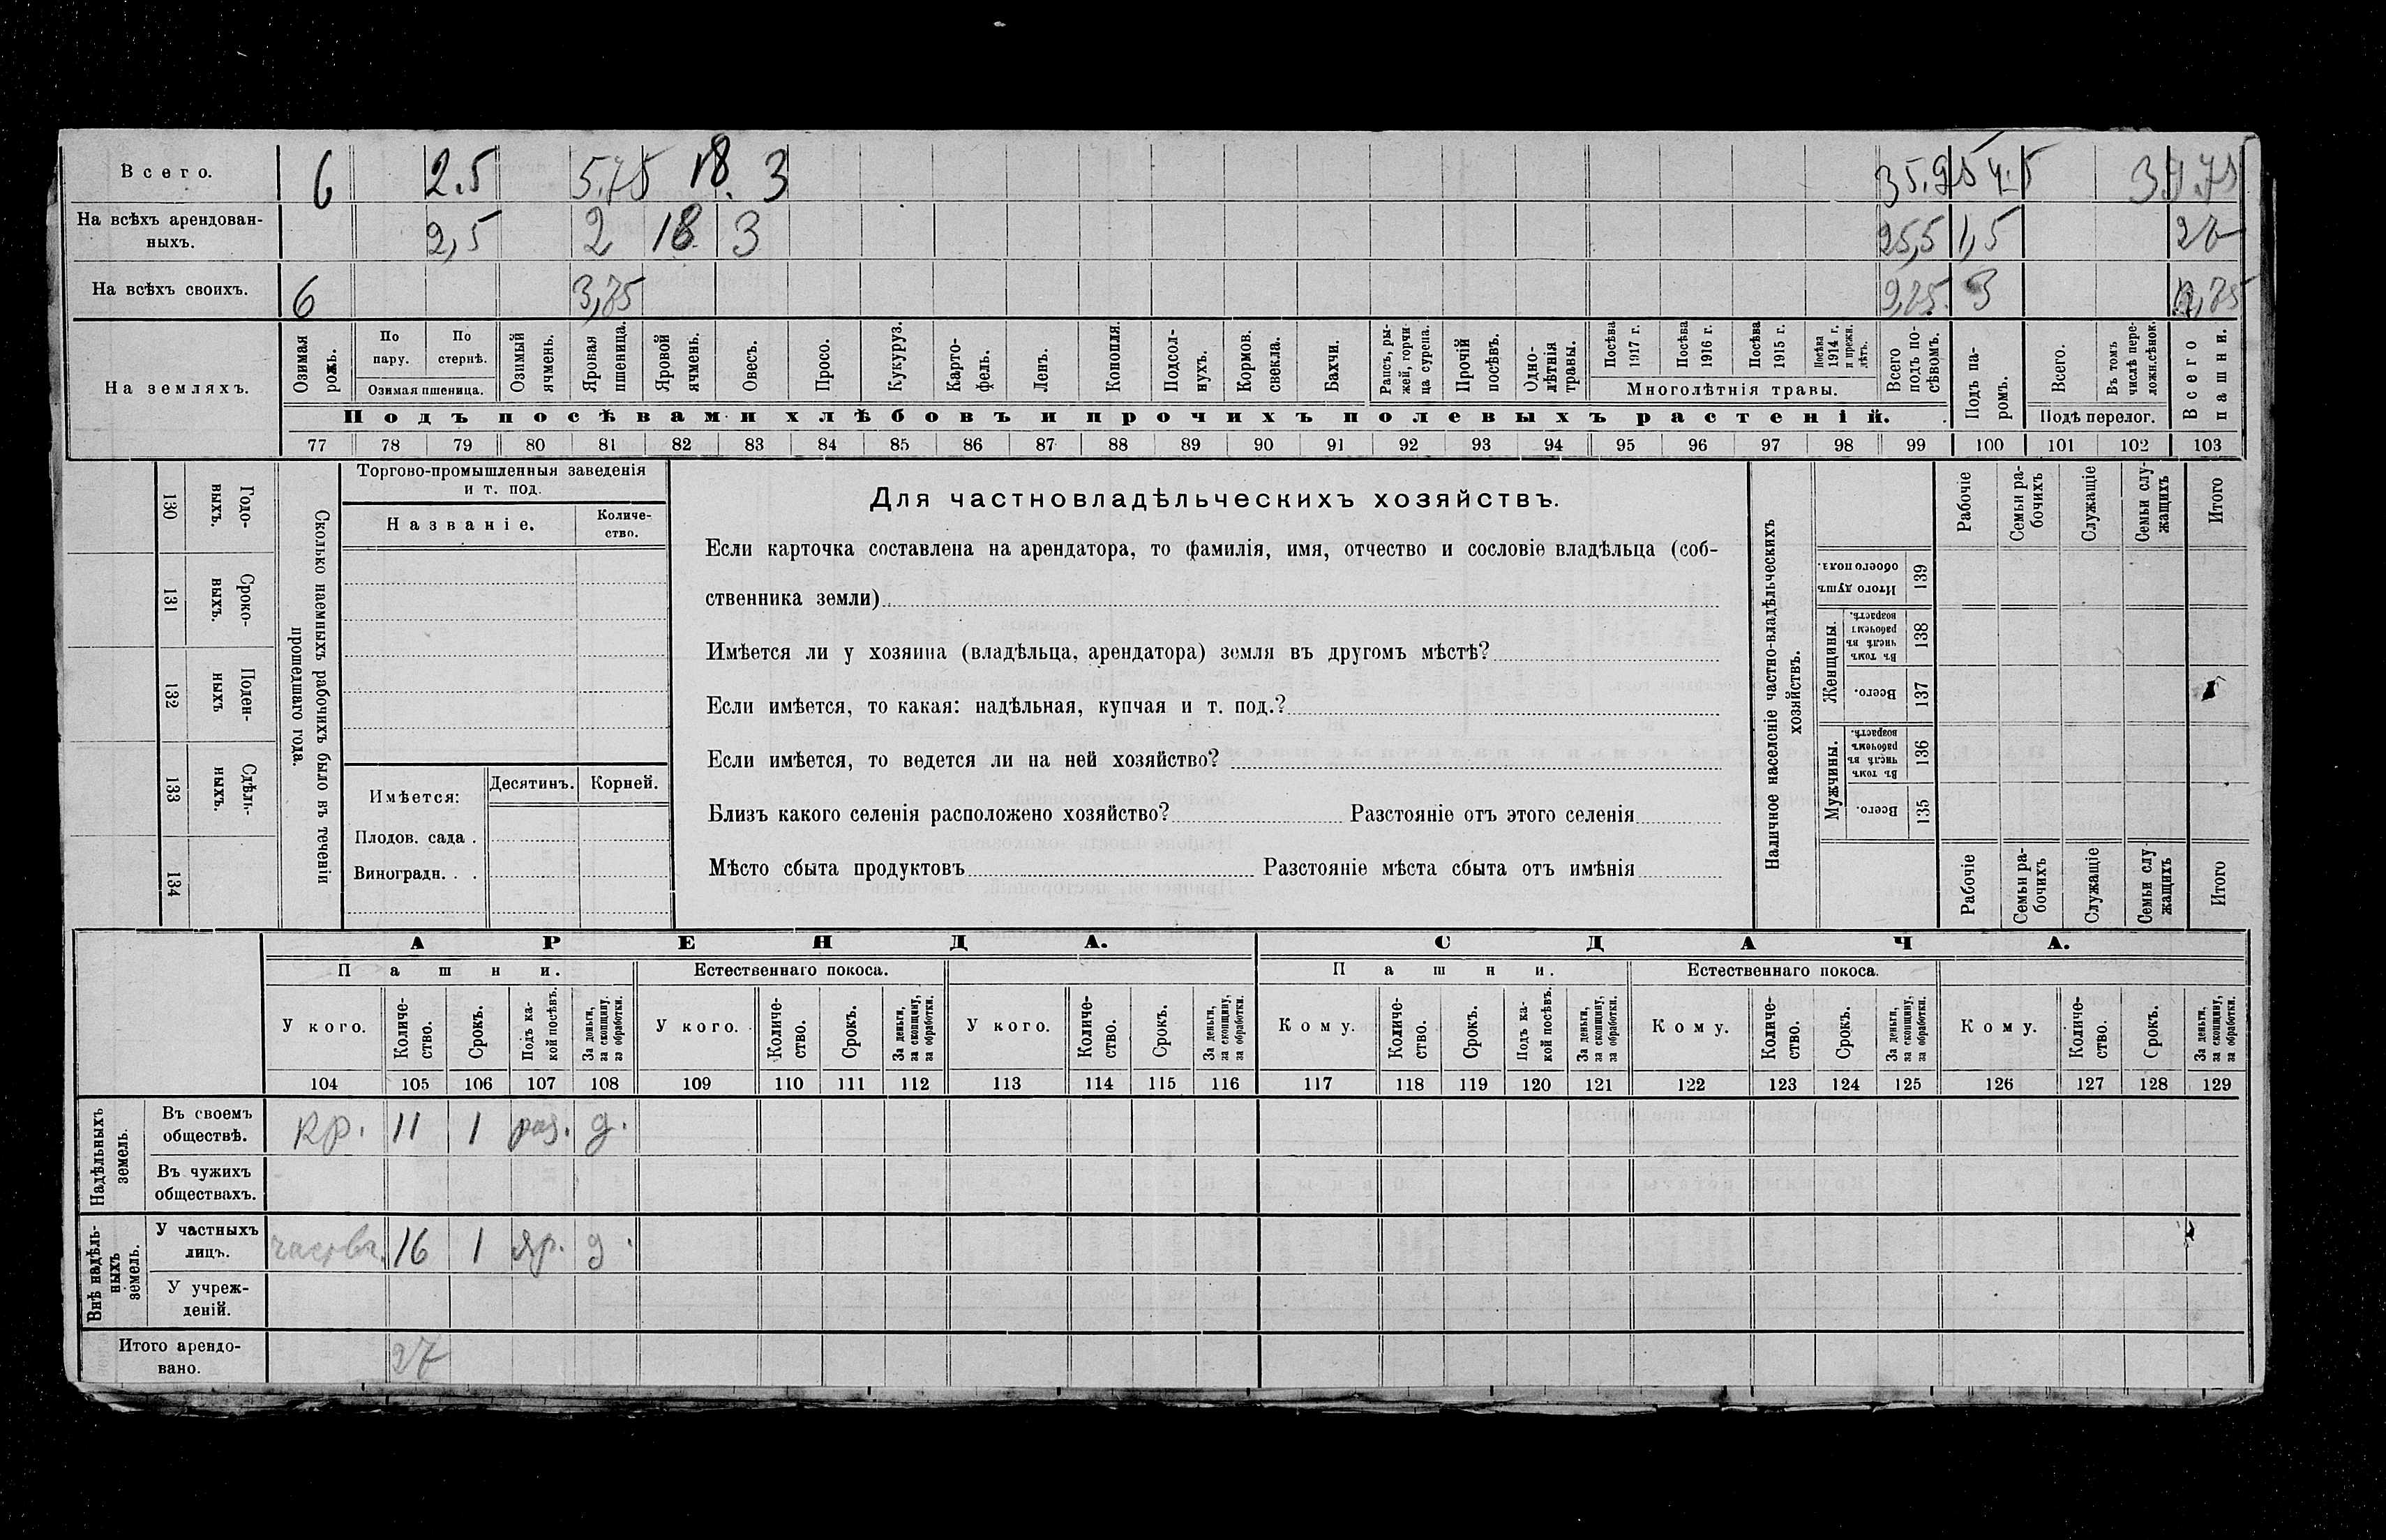 Всего. 6 2.5 5.75 18. 3 35.25 4.5 39.75
На всѣхъ арендован-
ныхъ. 2,5 2 18 3 25,5 1,5 27
На всѣхъ своихъ. 6 3,75 9,75. 3 12,75
На земляхъ.
Озимая рожь.
По пару.
По стернѣ.
Озимая пшеница.
Озимый ячмень.
Яровая пшеница.
Яровой ячмень.
Овесъ.
Просо.
Кукуруз.
Карто-
фель.
Ленъ.
Конопля.
Подсол-
нухъ.
Кормов. свекла.
Бахчи.
Рапсъ, ры-
жей, горчи
ца сурепа.
Прочій посѣвъ.
Одно-
лѣтнія
травы.
Посѣва 1917 г.
Посѣва 1916 г.
Посѣва 1915 г.
Посѣва 1914 г. и прежн. лѣтъ.
Многолѣтнія травы.
Всего подъ по-
сѣвомъ.
Подъ посѣвами хлѣбовъ и прочихъ полевыхъ растеній.
Подъ па-
ромъ.
Всего.
Въ томъ числѣ пере-
ложн.сѣнок.
Подъ перелог.
Всего пашни.
77 78 79 80 81 82 83 84 85 86 87 88 89 90 91 92 93 94 95 96 97 98 99 100 101 102 103
130 Годо-
выхъ.
131 Сроко-
выхъ.
132 Поден-
ныхъ
133 Сдѣль-
ныхъ.
134
Сколько наемныхъ рабочихъ было въ теченіи
прошедшаго года.
Торгово-промышленныя заведенія
и т. под.
Названіе.
Количе-
ство.
Имѣется:
Десятинъ. Корней.
Плодов. сада .
Виноградн. . .
Для частновладѣльческихъ хозяйствъ.
Если карточка составлена на арендатора, то фамилія, имя, отчество и сословіе владѣльца (соб-
ственника земли)
Имѣется ли у хозяина (владѣльца, арендатора) земля въ другомъ мѣстѣ?
Если имѣется, то какая: надѣльная, купчая и т. под.?
Если имѣется, то ведется ли на ней хозяйство?
Близъ какого селенія расположено хозяйство? Разстояніе отъ этого селенія
Мѣсто сбыта продуктовъ Разстояніе мѣста сбыта отъ имѣнія
Наличное населеніе частно-владѣльческихъ
хозяйствъ.
Рабочіе
Семьи ра-
бочихъ
Служащіе
Семьи слу-
жащихъ
Итого
Итого душъ обоего пола. 139
Женщины.
Въ томъ числѣ въ рабочемъ возрастѣ. 138
Всего. 137
Мужчины.
Въ томъ числѣ въ рабочемъ возрастѣ. 136
Всего. 135
Рабочіе
Семьи ра-
бочихъ
Служащіе
Семьи слу-
жащихъ
Итого
АРЕНДА. СДАЧА.
Пашни. Естественнаго покоса. Пашни. Естественнаго покоса.
У кого.
Количе-
ство.
Срокъ.
Подъ ка-
кой посѣвъ.
За деньги,
за скопщину,
за обработки.
У кого.
Количе-
ство.
Срокъ.
За деньги,
за скопщину,
за обработки.
У кого.
Количе-
ство.
Срокъ.
За деньги,
за скопщину,
за обработки.
Кому.
Количе-
ство.
Срокъ.
Подъ ка-
кой посѣвъ.
За деньги,
за скопщину,
за обработки.
Кому.
Количе-
ство.
Срокъ.
За деньги,
за скопщину,
за обработки.
Кому.
Количе-
ство.
Срокъ.
За деньги,
за скопщину,
за обработки.
104 105 106 107 108 109 110 111 112 113 114 115 116 117 118 119 120 121 122 123 124 125 126 127 128 129
Надѣльныхъ
земель.
Въ своемъ
обществѣ. кр. 11 1 раз. д.
Въ чужихъ
обществахъ.
Внѣ надѣль-
ныхъ
земель.
У частныхъ
лицъ. 16 1 яр. д.
У учреж-
деній.
Итого арендо-
вано. 27